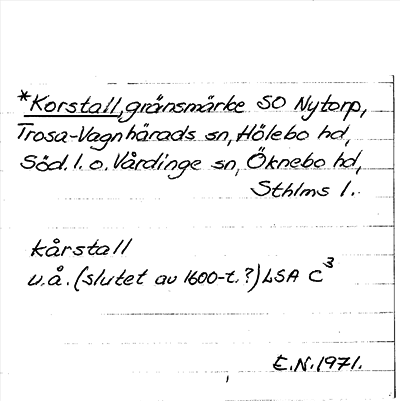 *Korstall, gränsmärke SO Nytorp,
Trosa-Vagnhärads sn, Hölebo hd,
Söd. l. o. Vårdinge sn, Öknebo hd,
Sthlms l.
kårstall
u.å. (slutet av 1600-t.?) LSA C³
E.N. 1971.